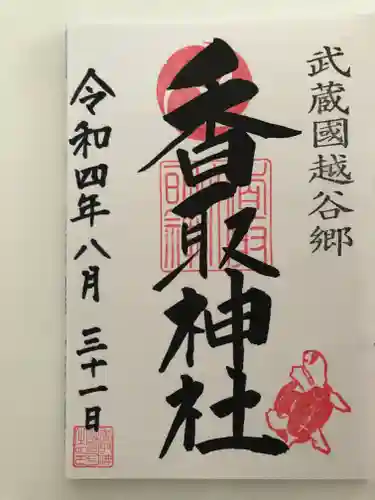 武蔵國越谷郷
香取神社
令和四年八月三十一日